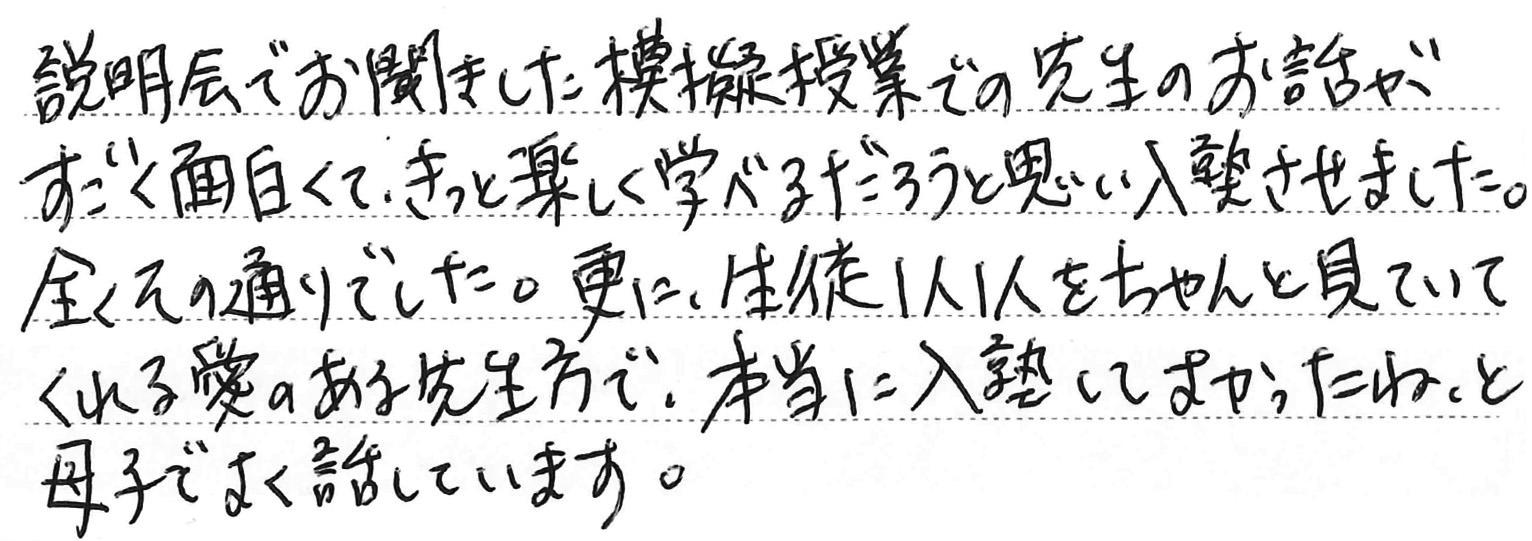 説明会でお聞きした模擬授業での先生のお話が
すごく面白くて、きっと楽しく学べるだろうと思い入塾させました。
全くその通りでした。更に、生徒1人1人をちゃんと見ていて
くれる愛のある先生方で、本当に入塾してよかったね、と
母子でよく話しています。